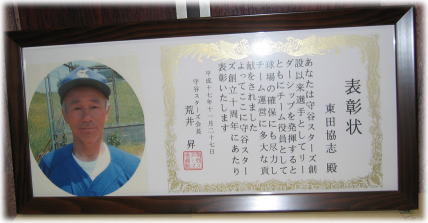 表彰状
東田協志 殿
あなたは守谷スターズ創
設以来選手としてリー
ダーシップを発揮すると
ともにチーム役員として
球場の確保にも尽力し
チーム運営に多大な貢
献をされました
よってここに守谷スター
ズ創立十周年にあたり
表彰いたします
平成十七年十一月二十七日
守谷スターズ会長
荒井 昇